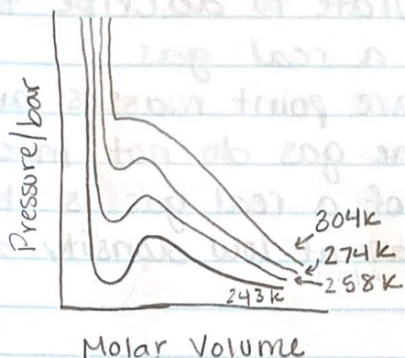 Pressure/bar
304K
274K
258K
243K
Molar Volume